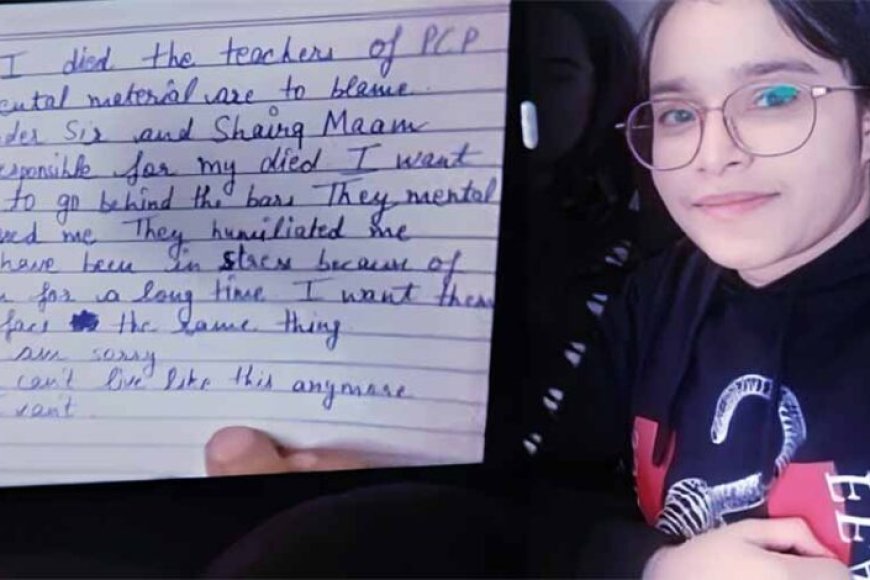 I died the teachers of PCP
ental material are to blame.
der Sir and Shairq Maam
esponsible for my died I want
to go behind the bars They mental
sed me They humiliated me
have been in stress because of
for a long time I want them
face the same thing
am sorry
can't live like this anymore
want
EE